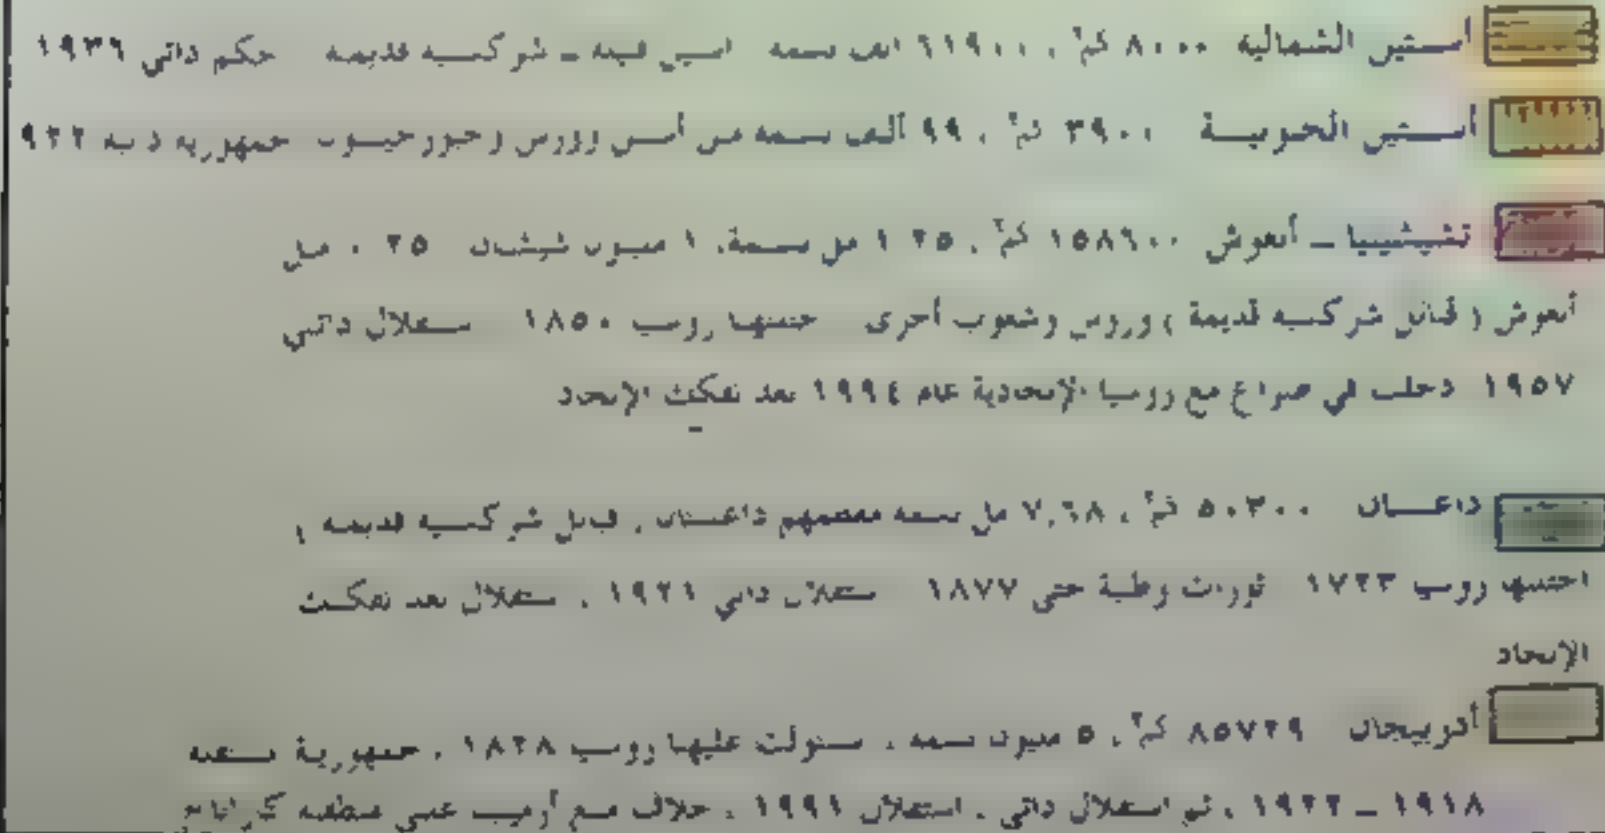 أستين الشمالية ٨٠٠٠ كم٢ ، ٦١٩٠٠٠ ـ شركسية قديمة حكم ذاتي ١٩٣٦
أستين الجنوبية ٣٩٠٠ كم٢ ، ٩٩ ألف نسمة من أستين وروس وجيورجيون جمهورية
تشيشينيا ـ أنغوش ١٥٨٦٠٠ كم٢ ، مل نسمة، ١ مليون شيشان ٢٥ ، مل
أنغوش ( قبائل شركسية قديمة ) وروس وشعوب أخرى احتلتها روسيا ١٨٥٠ استقلال ذاتي
١٩٥٧ دخلت في صراع مع روسيا الإتحادية عام ١٩٩٤ بعد تفكك الإتحاد
داغستان ٥٠٣٠٠ كم٢ ، مل نسمة معظمهم داغستان ، قبائل شركسية قديمة ،
احتلتها روسيا ١٧٢٣ ثورات وطنية حتى ١٨٧٧ استقلال ذاتي ١٩٢١ ، استقلال بعد تفكك
الإتحاد
أذربيجان ٨٥٧٢٩ كم٢ ، ٥ مليون نسمة ، استولت عليها روسيا ١٨٢٨ ، جمهورية مستقلة
١٩١٨ ـ ١٩٢٢ ، ثم استقلال ذاتي ، استقلال ١٩٩١ ، خلاف مع أرمينيا على منطقة